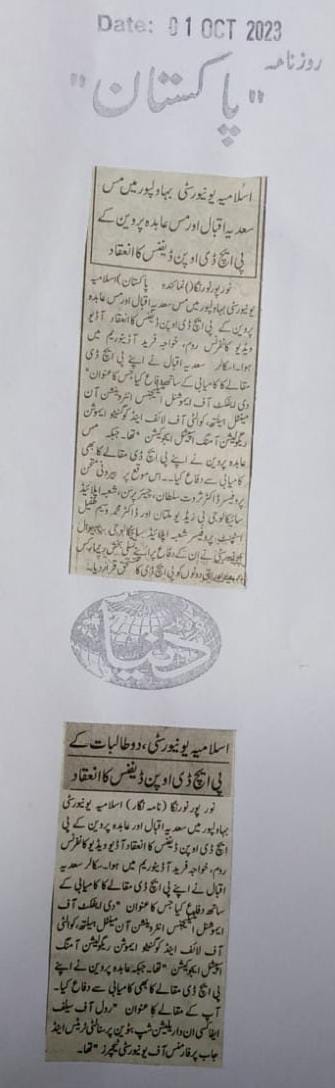 Date: 01 OCT 2023
روزنامہ
"پاکستان"
اسلامیہ یونیورسٹی بہاولپور میں مس
سعدیہ اقبال اور مس عابدہ پروین کے
پی ایچ ڈی اوپن ڈیفنس کا انعقاد
نور پور نورنگا (نمائندہ پاکستان) اسلامیہ
یونیورسٹی بہاولپور میں مس سعدیہ اقبال اور مس عابدہ
پروین کے پی ایچ ڈی اوپن ڈیفنس کا انعقاد آڈیو
ویڈیو کانفرنس روم، خواجہ فرید آڈیٹوریم میں
ہوا۔ اسکالر سعدیہ اقبال نے اپنے پی ایچ ڈی
مقالے کا کامیابی کے ساتھ دفاع کیا جس کا عنوان "
دی ایفیکٹ آف ایموشنل انٹیلیجنس انٹروینشن آن
مینٹل ہیلتھ، کوالٹی آف لائف اینڈ کوگنیٹو ایموشن
ریگولیشن آمنگ اسپیشل ایجوکیشن" تھا۔ جبکہ مس
عابدہ پروین نے اپنے پی ایچ ڈی مقالے کا بھی
کامیابی سے دفاع کیا۔۔ اس موقع پر بیرونی ممتحن
پروفیسر ڈاکٹر ثروت سلطان، چیئرپرسن، شعبہ اپلائیڈ
سائیکالوجی بی زیڈ یو ملتان اور ڈاکٹر محمد وسیم طفیل
اسسٹنٹ پروفیسر شعبہ اپلائیڈ سائیکالوجی
یونیورسٹی نے ان کے دفاع پر اپنے تسلی بخش ریمارکس
دونوں کو پی ایچ ڈی کا مستحق قرار دیا۔
دنیا
اسلامیہ یونیورسٹی، دو طالبات کے
پی ایچ ڈی اوپن ڈیفنس کا انعقاد
نور پور نورنگا (نامہ نگار) اسلامیہ یونیورسٹی
بہاولپور میں سعدیہ اقبال اور عابدہ پروین کے پی
ایچ ڈی اوپن ڈیفنس کا انعقاد آڈیو ویڈیو کانفرنس
روم، خواجہ فرید آڈیٹوریم میں ہوا۔ سکالر سعدیہ
اقبال نے اپنے پی ایچ ڈی مقالے کا کامیابی کے
ساتھ دفاع کیا جس کا عنوان "دی ایفیکٹ آف
ایموشنل انٹیلیجنس انٹروینشن آن مینٹل ہیلتھ، کوالٹی
آف لائف اینڈ کوگنیٹو ایموشن ریگولیشن آمنگ
اسپیشل ایجوکیشن" تھا۔ جبکہ عابدہ پروین نے اپنے
پی ایچ ڈی مقالے کا بھی کامیابی سے دفاع کیا۔
آپ کے مقالے کا عنوان "رول آف سیلف
ایفی کیسی ان دا ریلیشن شپ بٹوین پرسنالٹی ٹریٹس اینڈ
جاب پرفارمنس آف یونیورسٹی ٹیچرز" تھا۔